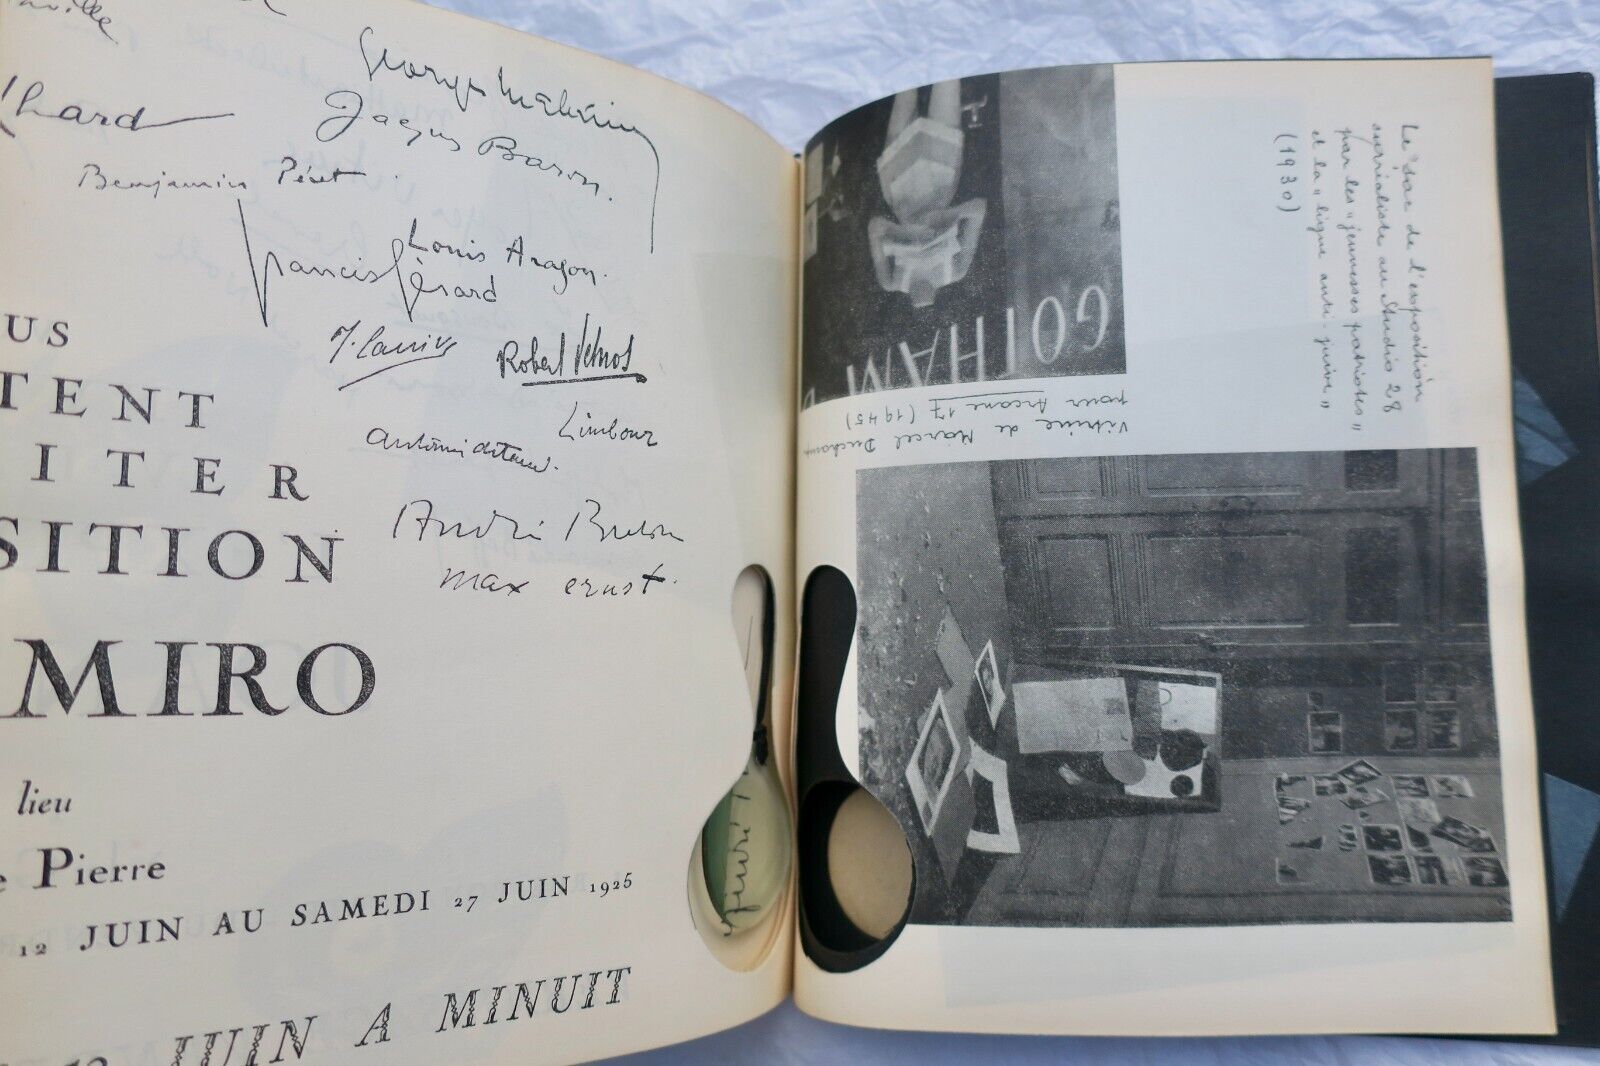 ville
Georges Malkine
Jacques Baron.
hard
Benjamin Péret.
Louis Aragon.
francis Gérard
Robert Desnos
Limbour
antonin artaud.
André Breton
max ernst.
US
TENT
ITER
SITION
MIRO
lieu
e Pierre
12 JUIN AU SAMEDI 27 JUIN 1925
12 JUIN A MINUIT
Le "sac de l'exposition
surréaliste au Studio 28
par les "jeunesses patriotes"
et la "ligue anti-juive"
(1930)
GOTHAM
Vitrine de Marcel Duchamp
pour Arcane 17 (1945)